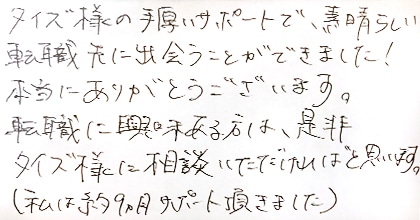 タイズ様の手厚いサポートで、素晴らしい
転職先に出会うことができました！
本当にありがとうございます。
転職に興味ある方は、是非
タイズ様に相談いただければと思います。
(私は約9ヵ月サポート頂きました)